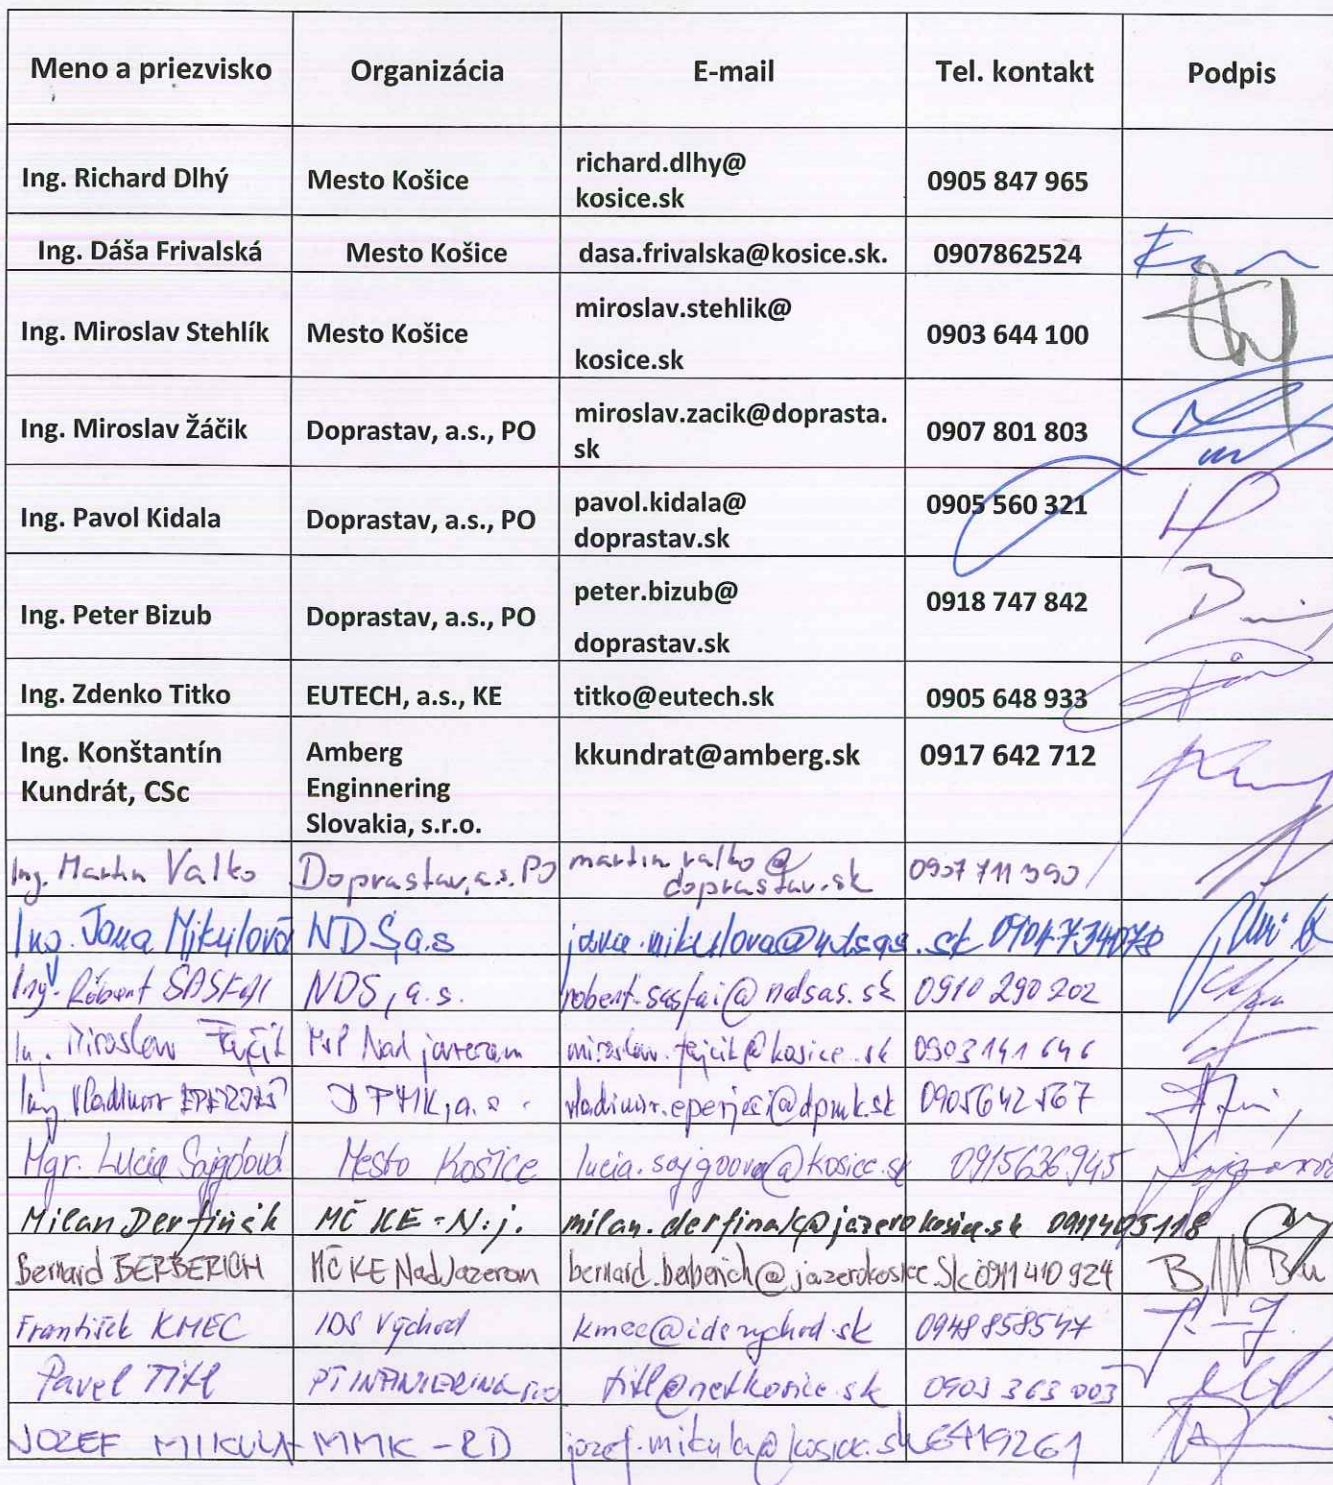 Meno a priezvisko Organizácia E-mail Tel. kontakt Podpis
Ing. Richard Dlhý Mesto Košice richard.dlhy@ 0905 847 965
kosice.sk
Ing. Dáša Frivalská Mesto Košice dasa.frivalska@kosice.sk. 0907862524
Ing. Miroslav Stehlík Mesto Košice miroslav.stehlik@ 0903 644 100
kosice.sk
Ing. Miroslav Žáčik Doprastav, a.s., PO miroslav.zacik@doprasta. 0907 801 803
sk
Ing. Pavol Kidala Doprastav, a.s., PO pavol.kidala@ 0905 560 321
doprastav.sk
Ing. Peter Bizub Doprastav, a.s., PO peter.bizub@ 0918 747 842
doprastav.sk
Ing. Zdenko Titko EUTECH, a.s., KE titko@eutech.sk 0905 648 933
Ing. Konštantín Amberg kkundrat@amberg.sk 0917 642 712
Kundrát, CSc Enginnering
Slovakia, s.r.o.
Ing. Martin Valko Doprastav, a.s. PO martin.valko@ 0907 711 390
doprastav.sk
Ing. Jana Mikulová NDS, a.s jana.mikulova@ndsas.sk
Ing. Róbert ŠASFAI NDS, a.s. robert.sasfai@ndsas.sk 0910 290 202
Ing. Miroslav Fejčík Nad jazerom miroslav.fejcik@kosice.sk 0903 141 646
Ing Vladimír EPERJEŠI DPMK, a.s. vladimir.eperjesi@dpmk.sk 0905642567
Mgr. Lucia Sajgóová Mesto Košice 0915636945
Milan Derfiňák MČ KE - N.j. milan.derfinak@jazerokosice.sk 0911405118
Bernard BERBERICH MČ KE Nad Jazerom bernard.berberich@jazerokosice.sk 0911 410 924
František KMEC IDS Východ kmec@idsvychod.sk 0948 858547
Pavel Titl titl@netkosice.sk 0903 363 003
JOZEF MIKULA MMK - RD jozef.mikula@kosice.sk 6419261